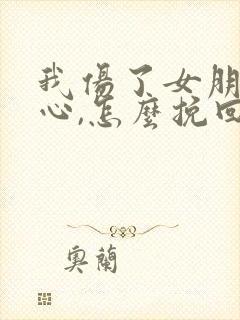 我傷了女朋
心,怎麼挽回
奧蘭